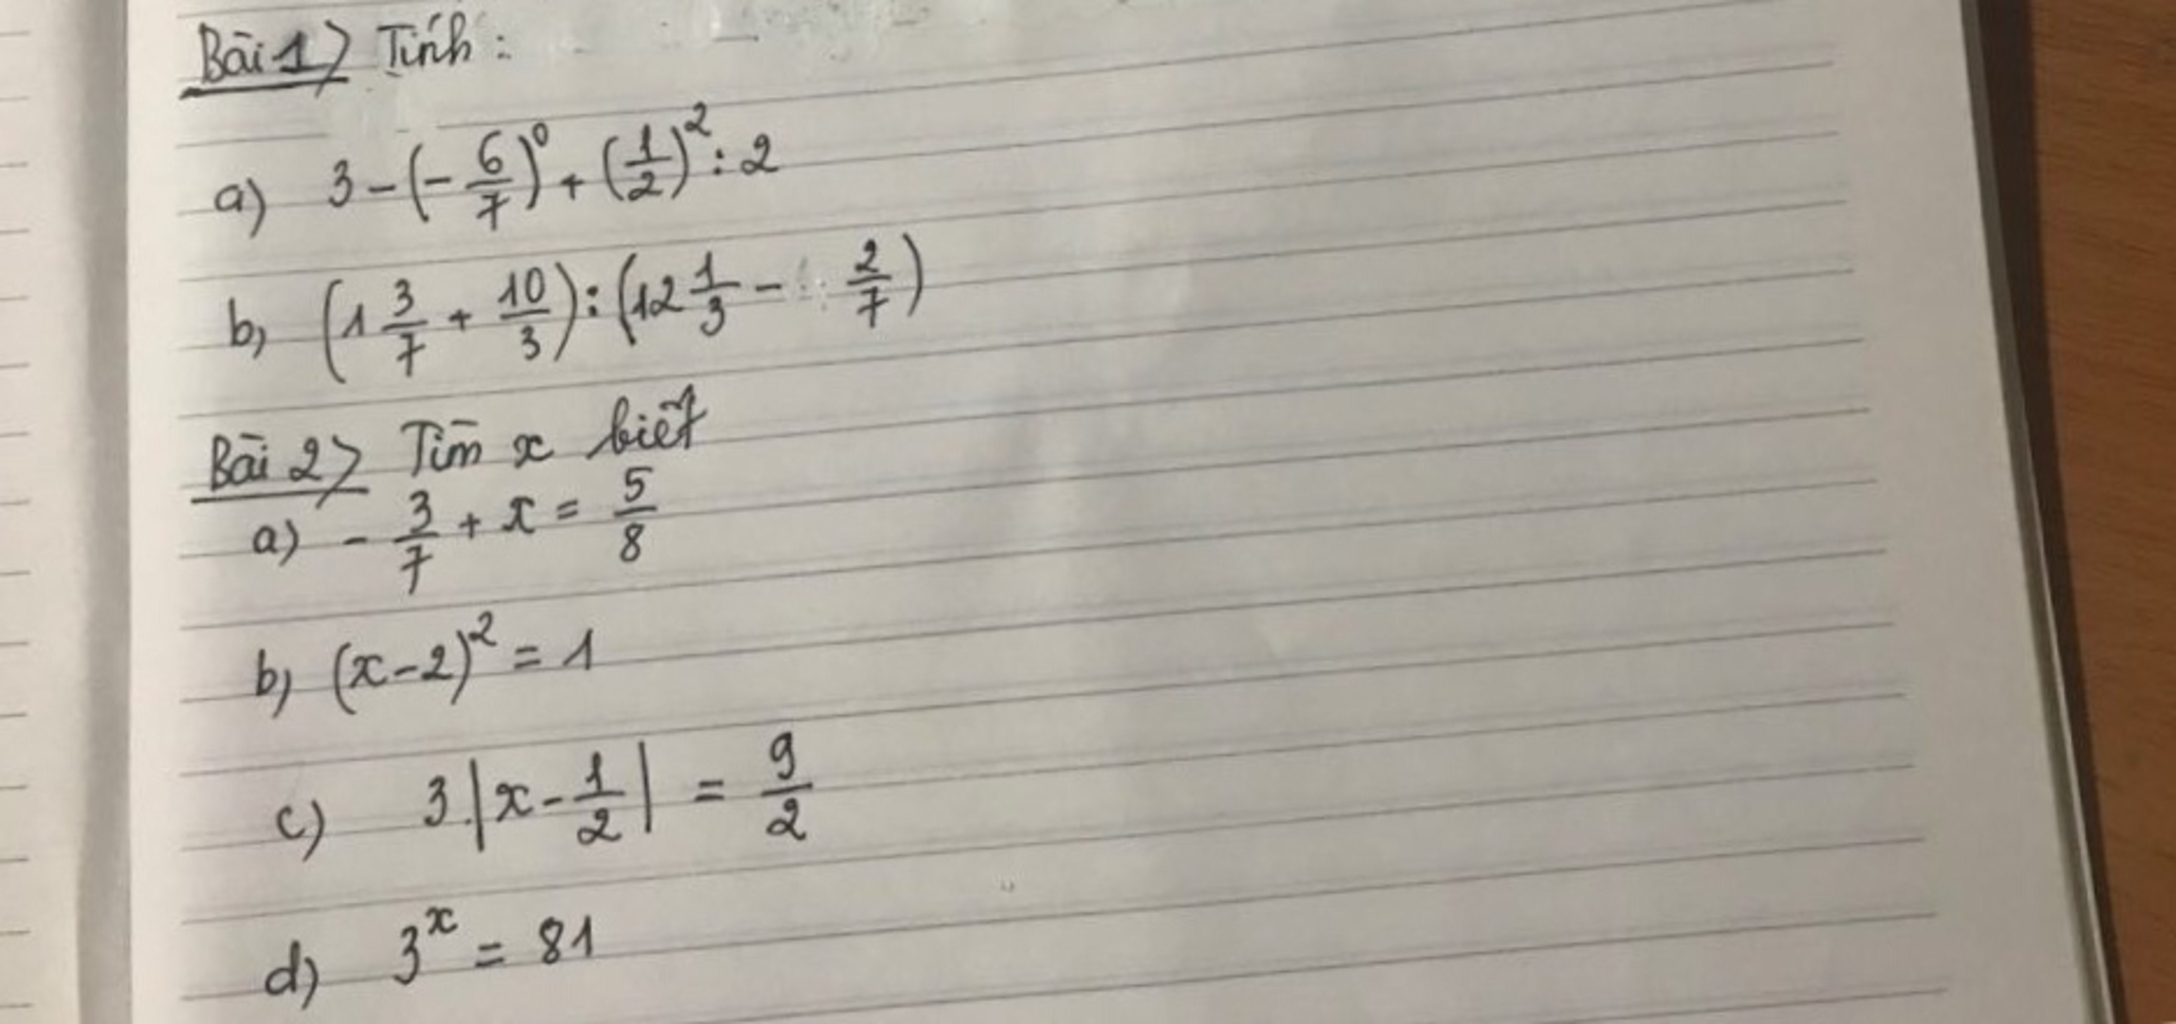 Bài 1> Tính:
a) 3 - (-6/7)^0 + (1/2)^2 : 2
b, (1 3/7 + 10/3) : (12 1/3 - 2/7)
Bài 2> Tìm x biết
a) -3/7 + x = 5/8
b, (x-2)^2 = 1
c) 3.|x - 1/2| = 9/2
d) 3^x = 81